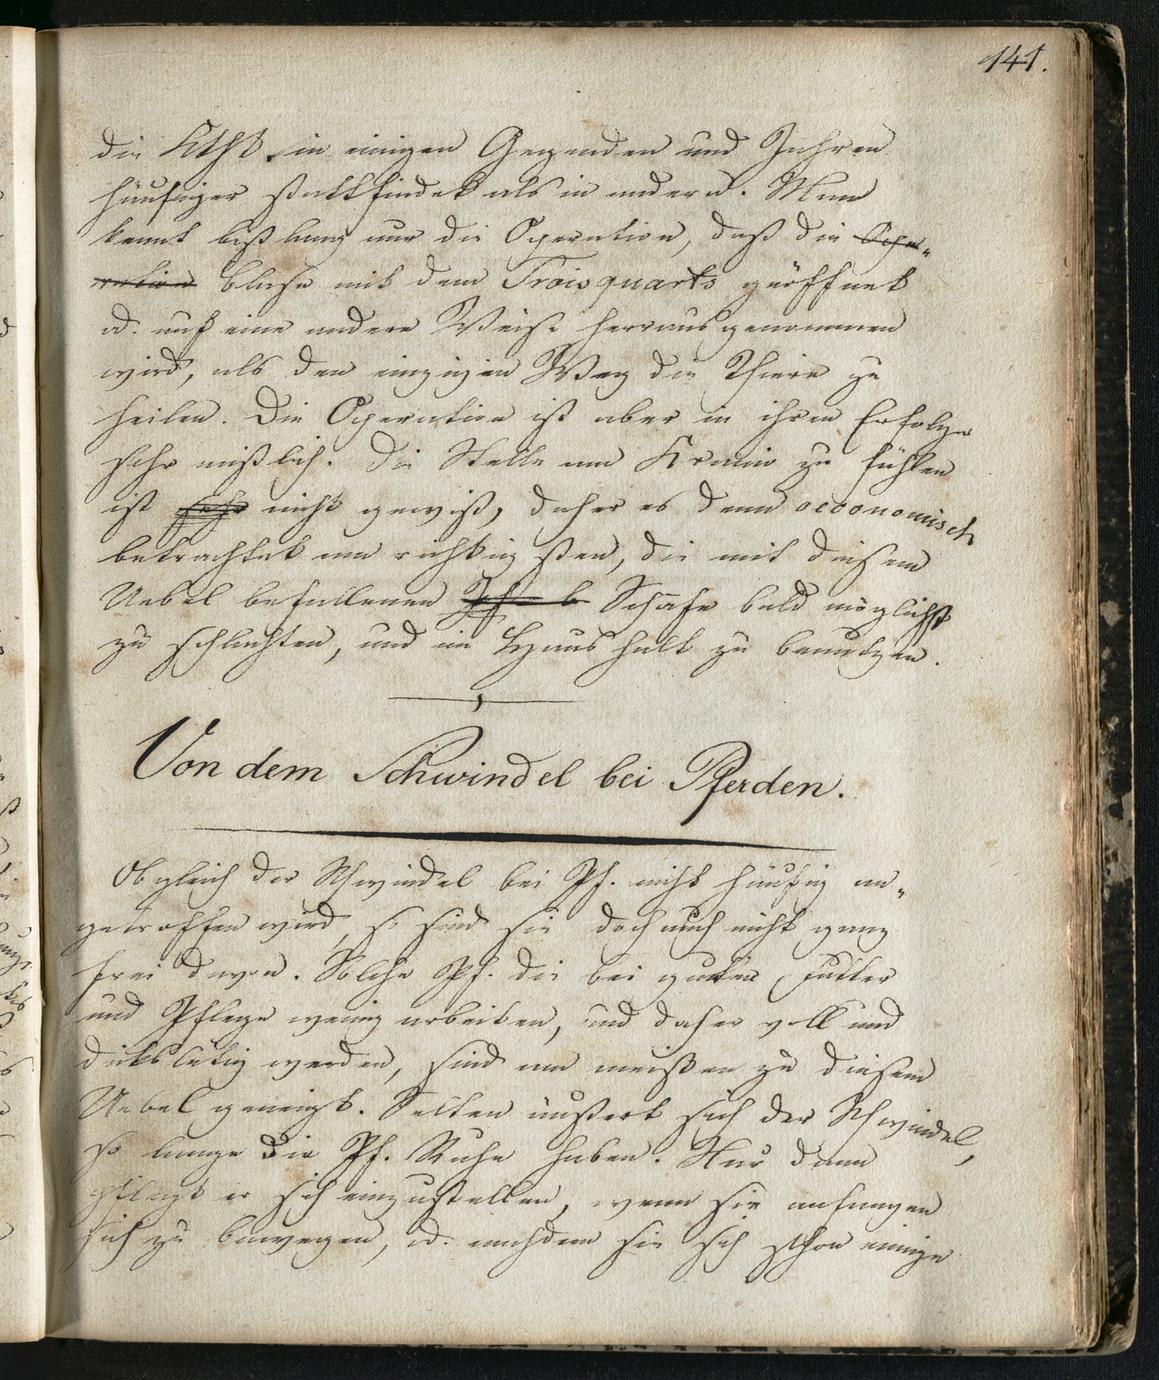 141.
die Kkht. in einigen Gegenden und Jahren
häufiger stattfindet als in andern. Man
kennt bißlang nur die Operation, daß die Ope-
ration blase mit dem Troisquarts geöffnet
od. auf eine andere Weise herrausgenommen
wird, als den einzigen Weg die Thiere zu
heilen. Die Operation ist aber in ihren Erfolge
sehr mißlich. Die Stelle am Kranio zu fühlen
ist sehr nicht gewiß, daher es denn oeconomisch
betrachtet am richtigsten, die mit diesem
Uebel befallenen Schafe bald möglichst
zu schlachten, und im Haushalt zu benutzen.
Von dem Schwindel bei Pferden.
Obgleich der Schwindel bei Pf. nicht häufig an-
getroffen wird, so sind sie doch auch nicht ganz
frei davon. Solche Pf. die bei guten Futter
und Pflege wenig arbeiten, und daher voll und
dickblütig werden, sind am meisten zu diesem
Uebel geneigt. Selten äußert sich der Schwindel,
so lange die Pf. Ruhe haben. Nur dann
pflegt er sich einzustellen, wenn sie anfangen
sich zu bewegen, od. nachdem sie sich schon einige